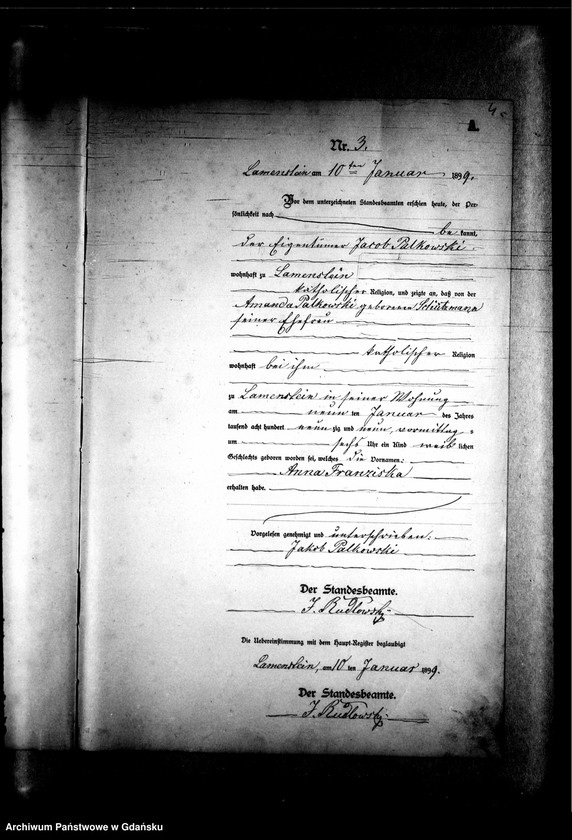 4
A.
Nr. 3.
Lamenstein am 10ten Januar 1899.
Vor dem unterzeichneten Standesbeamten erschien heute, der Per-
sönlichkeit nach
be kannt,
der Eigentümer Jacob Palkowski
wohnhaft zu Lamenstein
katholischer Religion, und zeigte an, daß von der
Amanda Palkowski geborenen
seiner Ehefrau
katholischer Religion
wohnhaft bei ihm
zu Lamenstein in seiner Wohnung
am neun ten Januar des Jahres
tausend acht hundert neun zig und neun, vormittag-s
um sechs Uhr ein Kind weib lichen
Geschlechts geboren worden sei, welches die Vornamen:
Anna Franziska
erhalten habe.
Vorgelesen genehmigt und unterschrieben.
Jakob Palkowski
Der Standesbeamte.
J. Rudlowski
Die Uebereinstimmung mit dem Haupt-Register beglaubigt
Lamenstein, am 10 ten Januar 1899.
Der Standesbeamte.
J. Rudlowski
Archiwum Państwowe w Gdańsku